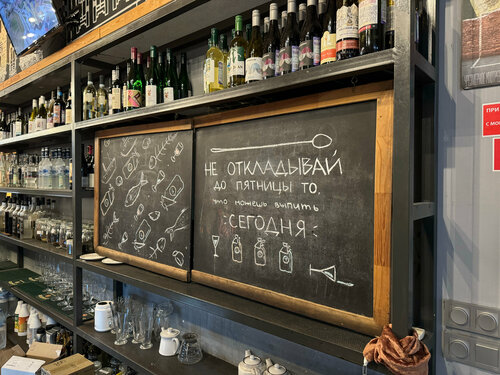 НЕ ОТКЛАДЫВАЙ
ДО ПЯТНИЦЫ ТО,
что можешь выпить
СЕГОДНЯ
ПРИ
С МО